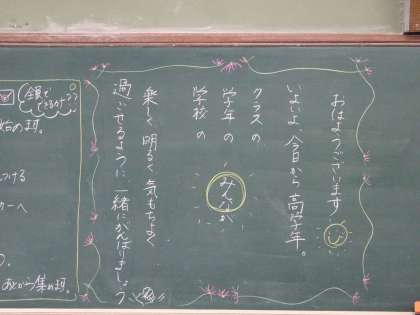 おはようございます
いよいよ、今日から高学年。
クラスの
学年の
学校の
みんなが
楽しく明るく気もちよく
過ごせるように、一緒にがんばりましょう
全員で
できるかな??
始めの時。
つける
カーへ
あとから集めます。